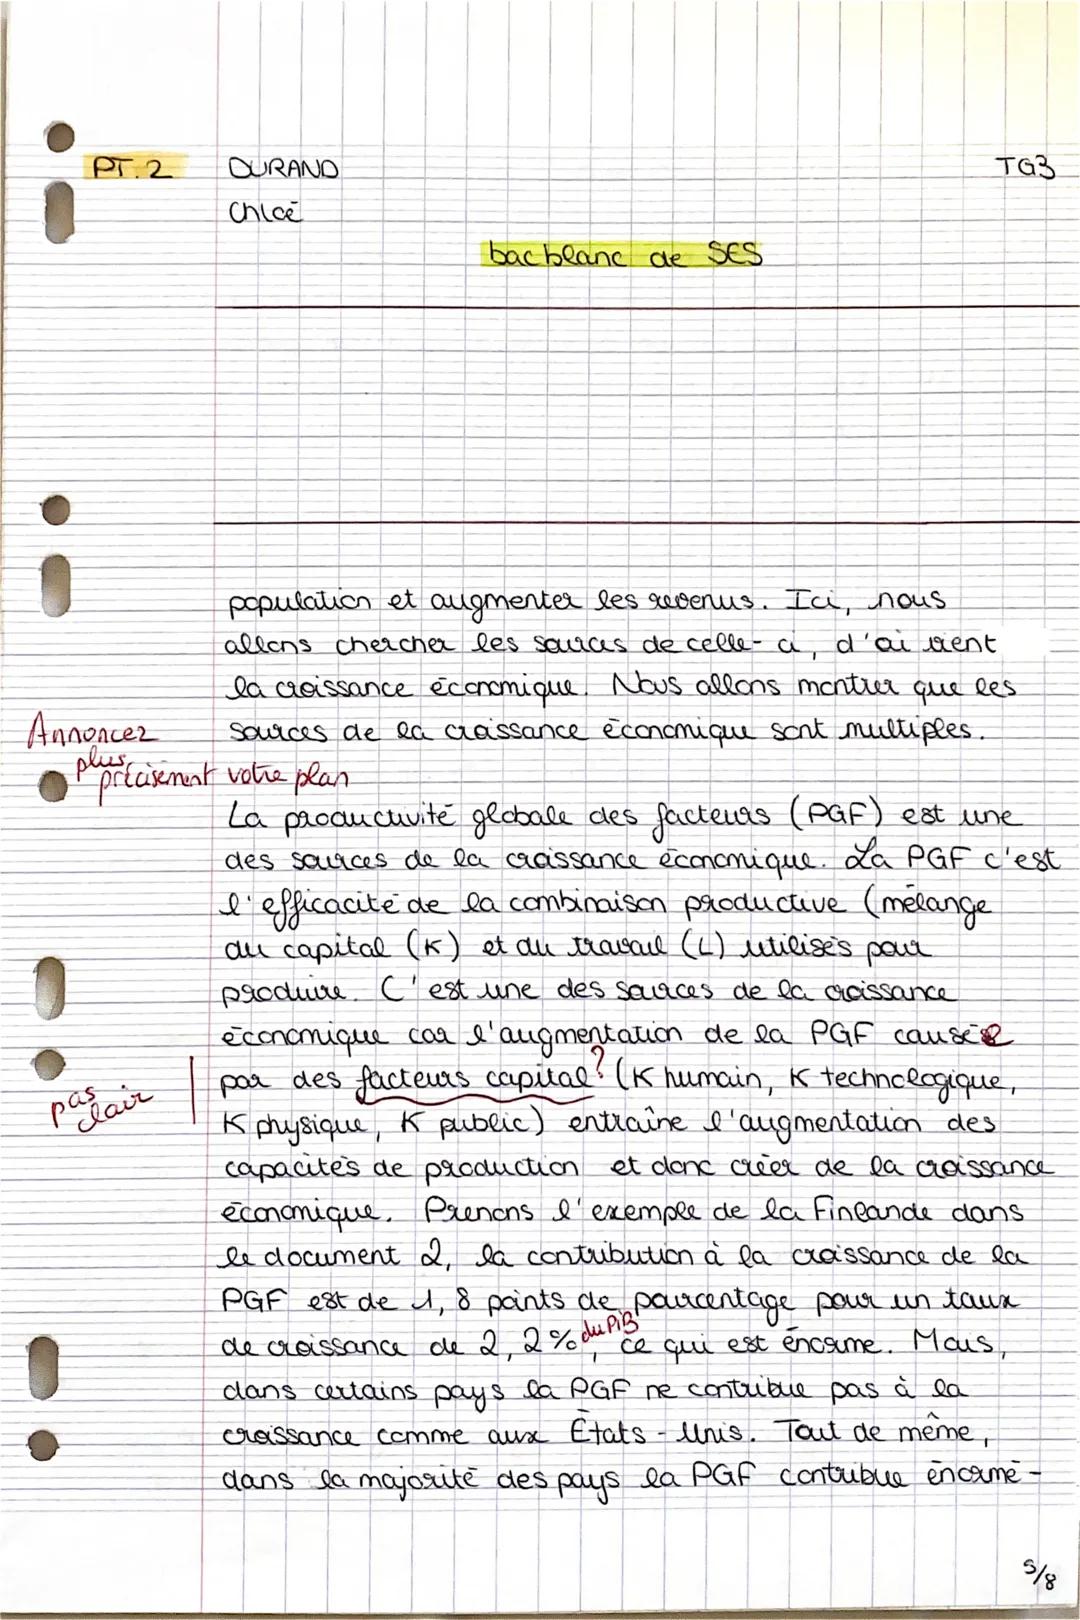 PT.2 DURAND TG3
Chloé
bac blanc de SES
population et augmenter les revenus. Ici, nous
allons chercher les sources de celle-ci, d'où vient
la croissance économique. Nous allons montrer que les
sources de la croissance économique sont multiples.
Annoncez
plus
précisément votre plan
La productivité globale des facteurs (PGF) est une
des sources de la croissance économique. La PGF c'est
l'efficacité de la combinaison productive (mélange
du capital (K) et du travail (L) utilisés pour
produire. C'est une des sources de la croissance
économique car l'augmentation de la PGF causée
par des facteurs capital ? (K humain, K technologique,
pas clair
K physique, K public) entraîne l'augmentation des
capacités de production et donc créer de la croissance
économique. Prenons l'exemple de la Finlande dans
le document 2, la contribution à la croissance de la
PGF est de 1,8 points de pourcentage pour un taux
de croissance de 2,2% du PIB, ce qui est énorme. Mais,
dans certains pays la PGF ne contribue pas à la
croissance comme aux États-Unis. Tout de même,
dans la majorité des pays la PGF contribue énormé-
5/8